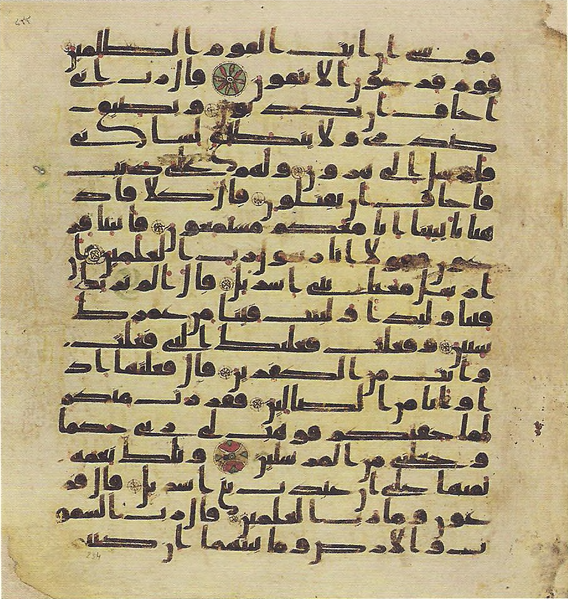 موسى ان ايت القوم الظلمين
قوم فرعون الا يتقون قال رب اني
اخاف ان يكذبون ويضيق
صدري ولا ينطلق لساني
فارسل الى هرون ولهم علي ذنب
فاخاف ان يقتلون قال كلا فاذ
هبا بايتنا انا معكم مستمعون فاتيا فر
عون فقولا انا رسول رب العلمين ان
ارسل معنا بني اسريل قال الم نربك
فينا وليدا ولبثت فينا من عمرك
سنين وفعلت فعلتك التي فعلت
وانت من الكفرين قال فعلتها اذ
ا وانا من الضالين ففررت منكم
لما خفتكم فوهب لي ربي حكما
وجعلني من المرسلين وتلك نعمة
تمنها علي ان عبدت بني اسريل قال فر
عون وما رب العلمين قال رب السمو
ت والارض وما بينهما ان كنتم
234